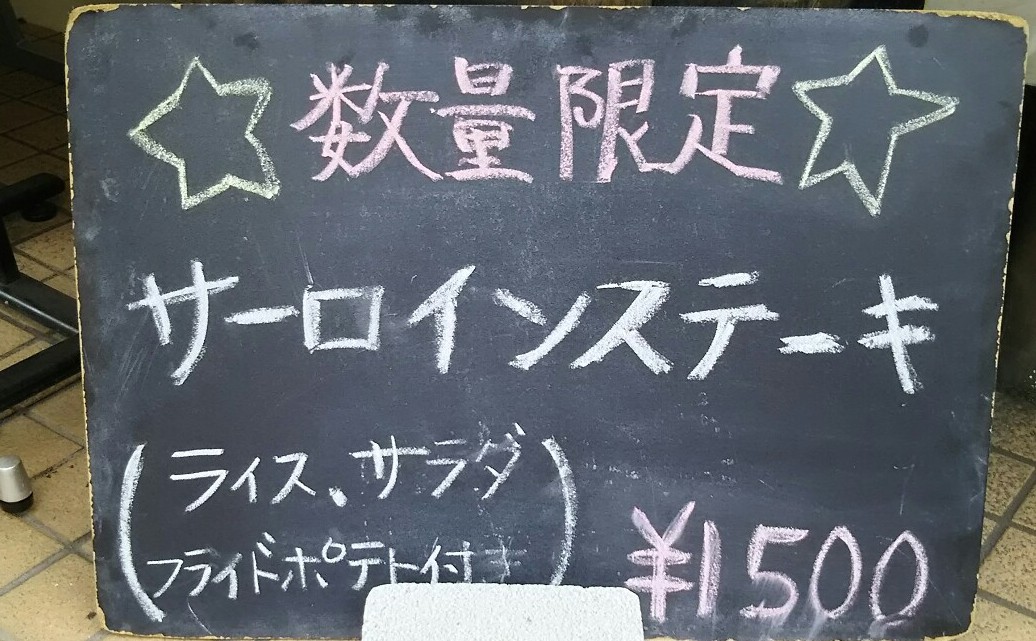 ☆数量限定☆
サーロインステーキ
(ライス、サラダ
フライドポテト付き)
¥1500